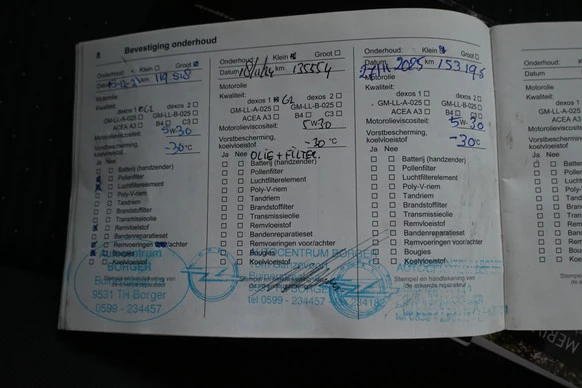 8 Bevestiging onderhoud
Onderhoud: Klein Groot
Datum km 119 518
Motorolie
Kwaliteit:
dexos 1 G2 dexos 2
GM-LL-A-025 GM-LL-B-025
ACEA A3 B4 C3
Motorolieviscositeit:
5W30
Vorstbescherming,
koelvloeistof
-30 °C
Ja Nee
Batterij (handzender)
Pollenfilter
Luchtfilterelement
Poly-V-riem
Tandriem
Brandstoffilter
Transmissieolie
Remvloeistof
Bandenreparatieset
Remvoeringen voor/achter
Bougies
Koelvloeistof
Stempel en handtekening van
de erkende reparateur
Autocentrum
BORGER
9531 TH Borger
0599 - 234457
Onderhoud: Klein Groot
Datum km 135554
Motorolie
Kwaliteit:
dexos 1 G2 dexos 2
GM-LL-A-025 GM-LL-B-025
ACEA A3 B4 C3
Motorolieviscositeit:
5W30
Vorstbescherming,
koelvloeistof
-30 °C
Ja Nee OLIE + FILTER.
Batterij (handzender)
Pollenfilter
Luchtfilterelement
Poly-V-riem
Tandriem
Brandstoffilter
Transmissieolie
Remvloeistof
Bandenreparatieset
Remvoeringen voor/achter
Bougies
Koelvloeistof
AUTOCENTRUM BORGER
BORGER
tel 0599 - 234457
Onderhoud: Klein Groot
Datum 2025 km
Motorolie
Kwaliteit:
dexos 1 dexos 2
GM-LL-A-025 GM-LL-B-025
ACEA A3 B4 C3
Motorolieviscositeit:
5W-30
Vorstbescherming,
koelvloeistof
-30 °C
Ja Nee
Batterij (handzender)
Pollenfilter
Luchtfilterelement
Poly-V-riem
Tandriem
Brandstoffilter
Transmissieolie
Remvloeistof
Bandenreparatieset
Remvoeringen voor/achter
Bougies
Koelvloeistof
Stempel en handtekening van
de erkende reparateur
Onderhoud:
Datum
Motorolie
Kwaliteit:
Ja Nee